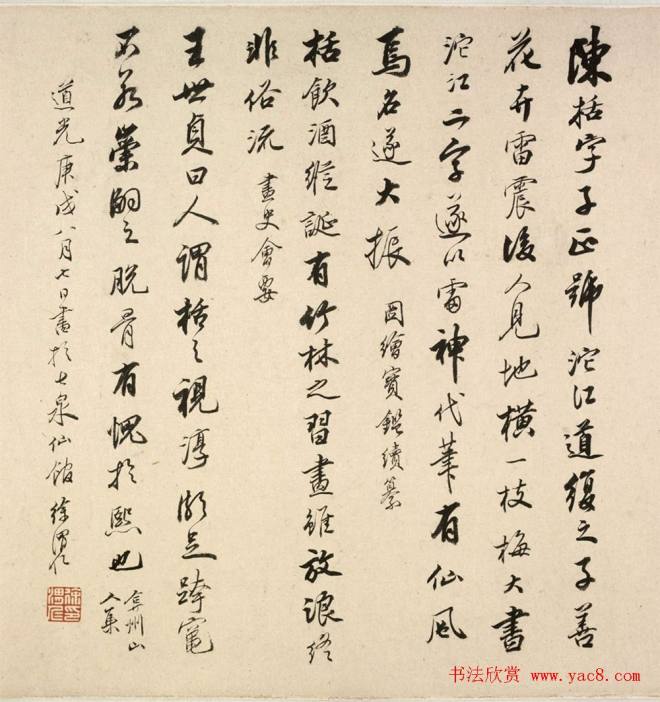 陳栝字子正號沱江道復之子善
花卉雷震後人見地橫一枝梅大書
沱江二字遂以雷神代筆有仙風
焉名遂大振 圖繪寶鑑續纂
栝飲酒縱誕有竹林之習畫雖放浪終
非俗流 畫史會要
王世貞曰人謂栝之視淳頗足跨竈
不若荣嗣之脫骨有愧於熙也 弇州山人藁
道光庚戌八月七日書於七泉仙館徐渭仁
书法欣赏 www.yac8.com